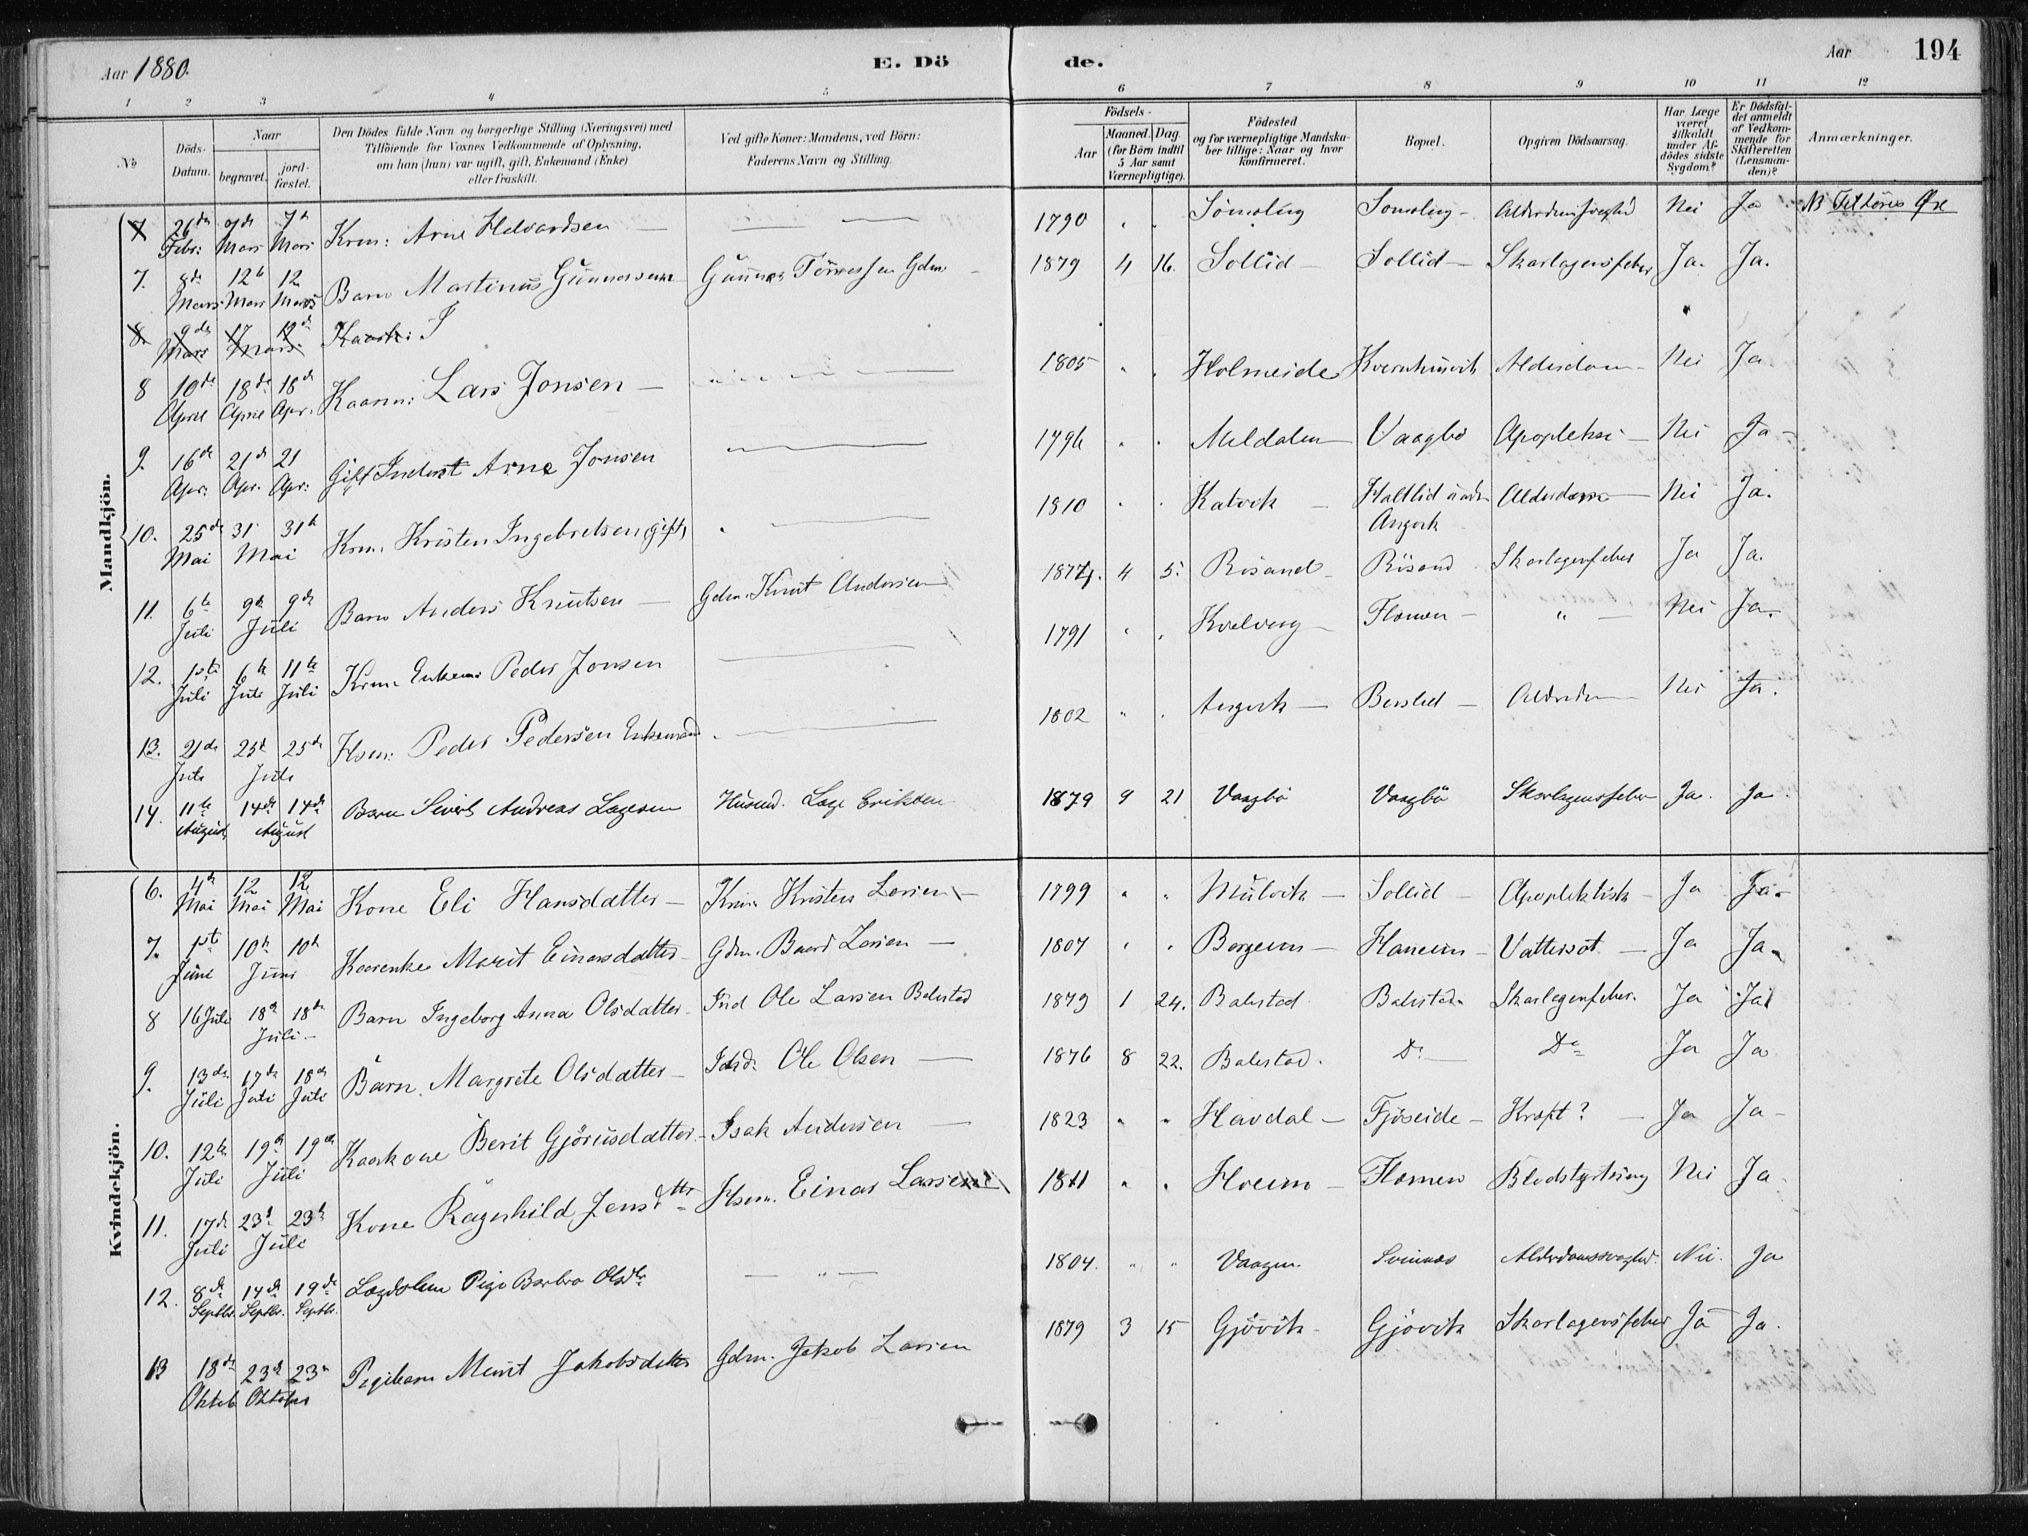 Aar 1880. E. Dö de. Aar 194
1 2 3 4 5 6 7 8 9 10 11 12
No
Döds-Datum.
Naar
begravet.
jord-fæstet.
Den Dödes fulde Navn og borgerlige Stilling (Næringsvei) med
Tilföiende for Voxnes Vedkommende af Oplysning,
om han (hun) var ugift, gift, Enkemand (Enke)
eller fraskilt.
Ved gifte Koner: Mandens, ved Börn:
Faderens Navn og Stilling.
Födsels-
Aar
Maaned. Dag.
(for Börn indtil
5 Aar samt
Værnepligtige).
Födested
og for værnepligtige Mandska-
ber tillige: Naar og hvor
konfirmeret.
Bopæl.
Opgiven Dödsaarsag.
Har Læge
været
tilkaldt
under Af-
dödes sidste
Sygdom?
Er Dödsfal-
det anmeldt
af Vedkom-
mende for
Skifteretten
(Lensman-
den)?
Anmærkninger.
Mandkjön.
7 26de Febr: 7de Mars 7de Mars Krm: Arne Helvardsen — 1790 " " Nei Ja NB Tilhöres Öre
7. 8de Mars 12te Mars 12 Mars Barn Martinus Gunnersen Gunner Gdm. 1879 4 16. Sollid Sollid Skarlagensfeber Ja. Ja.
8. 9de Mars 17 12de Mars.
8 10de April 18de April 18de Apr. Kaarm: Lars Jonsen — 1805 " " Holmeide Kvernhusvik Alderdom Nei Ja.
9. 16de Apr: 21de Apr. 21 Apr: Gift Inderst Arne Jonsen 1796 " " Meldalen Vaagbö Apopleksi Nei Ja
10. 25de Mai 31 31te Mai Krm. Kristen Ingebretsen gift 1810 " " Katvik Angvik Alderdom Nei Ja.
11. 6te Juli 9de 9de Juli Barn Anders Knutsen — Gdm. Knut Andersen 1874. 4 5. Rösand Rösand Skarlagensfeber Ja Ja.
12. 1ste Juli 6te Juli 11te Juli Krm. Enkem. Peder Jonsen 1791 " " Kvalvaag Flemmen " Nei Ja.
13. 21de Juli 25de 25de Juli Hsm: Peder Pedersen Enkemand 1802 " " Angvik Alderdom Nei Ja.
14. 11te August 14de 14de August Barn Sivert Andreas Lagesen Husmd. Lage Eriksen 1879 9 21 Vaagbö Vaagbö Skarlagensfeber Ja. Ja
Kvindekjön.
6. 4de Mai 12 Mai 12 Mai Kone Eli Hansdatter — Krm. Kristen Larsen 1799 " " Mulvik Sollid Apoplektisk Ja Ja
7. 1ste Juni 10de 10de Juni Kaarenke Marit Einarsdatter Gdm. Baard Larsen 1807 " " Bergem Hanem Vattersot Ja Ja
8 16 Juli 18de 18de Juli Barn Ingeborg Anna Olsdatter Ind Ole Larsen Balestad 1879 1 24. Balestad Balestad Skarlagensfeber. Ja Ja
9. 13de Juli 17de Juli 18de Juli Barn Margrete Olsdatter Indsd. Ole Olsen 1876 8 22. Balestad. Do Do Ja Ja
10. 12te Juli 19de 19de Juli Kaarkone Berit Gjöriusdatter Isak Andersen 1823 " " Havdal Fjöseide Kræft? Ja Ja
11. 17de Juli 23de 23de Juli Kone Ragnhild Jensdtr Hsm. Einar Larsen 1811 " " Hveem Flemmen Blodstyrtning Nei Ja
12. 8de Septbr. 14de Septbr. 19de Septbr. Lægdslem Pige Barbro Olsdtr — " — 1804. " " Vaagen Svinnes Alderdomssvaghed. Nei. Ja
13 18de Oktob 23de 23de Oktober Pigebarn Marit Jakobsdatter Gdm. Jakob Larsen 1879 3 15 Gjövik Gjövik Skarlagensfeber Ja Ja.